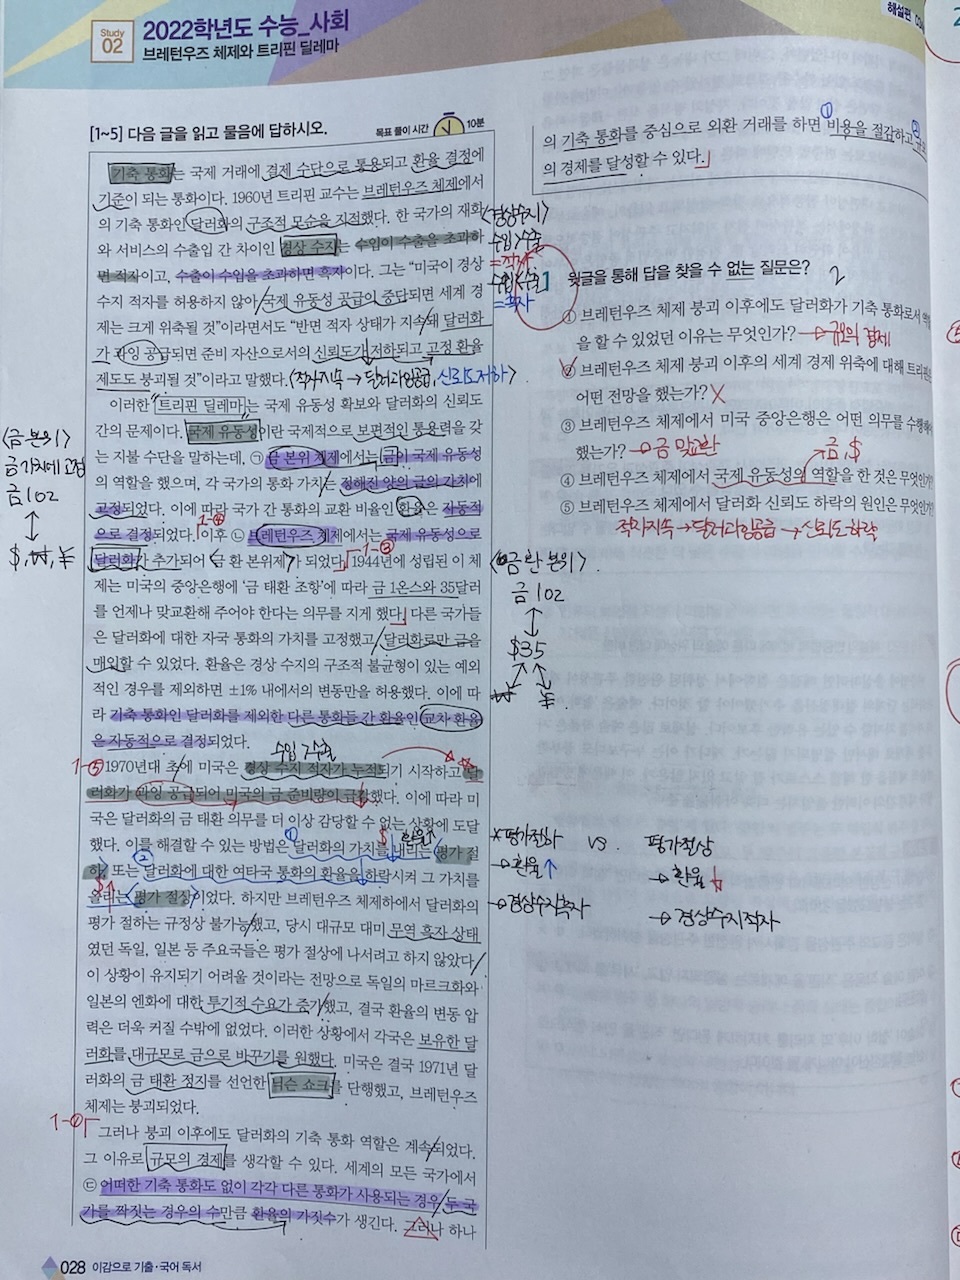 Study
02
2022학년도 수능_사회
브레턴우즈 체제와 트리핀 딜레마
해설편
[1~5] 다음 글을 읽고 물음에 답하시오.
목표 풀이 시간 10분
기축 통화는 국제 거래에 결제 수단으로 통용되고 환율 결정에
기준이 되는 통화이다. 1960년 트리핀 교수는 브레턴우즈 체제에서
의 기축 통화인 달러화의 구조적 모순을 지적했다. 한 국가의 재화
와 서비스의 수출입 간 차이인 경상 수지는 수입이 수출을 초과하
면 적자이고, 수출이 수입을 초과하면 흑자이다. 그는 “미국이 경상
수지 적자를 허용하지 않아 국제 유동성 공급이 중단되면 세계 경
제는 크게 위축될 것”이라면서도 “반면 적자 상태가 지속돼 달러화
가 과잉 공급되면 준비 자산으로서의 신뢰도가 저하되고 고정 환율
제도도 붕괴될 것”이라고 말했다.
<적자지속 → 달러과잉공급, 신뢰도저하>
이러한 트리핀 딜레마는 국제 유동성 확보와 달러화의 신뢰도
간의 문제이다. 국제 유동성이란 국제적으로 보편적인 통용력을 갖
는 지불 수단을 말하는데, ㉠ 금 본위 체제에서는 금이 국제 유동성
의 역할을 했으며, 각 국가의 통화 가치는 정해진 양의 금의 가치에
고정되었다. 이에 따라 국가 간 통화의 교환 비율인 환율은 자동적
으로 결정되었다. 이후 ㉡ 브레턴우즈 체제에서는 국제 유동성으로
달러화가 추가되어 ‘금 환 본위제’가 되었다. 1944년에 성립된 이 체
제는 미국의 중앙은행에 ‘금 태환 조항’에 따라 금 1온스와 35달러
를 언제나 맞교환해 주어야 한다는 의무를 지게 했다. 다른 국가들
은 달러화에 대한 자국 통화의 가치를 고정했고, 달러화로만 금을
매입할 수 있었다. 환율은 경상 수지의 구조적 불균형이 있는 예외
적인 경우를 제외하면 ±1% 내에서의 변동만을 허용했다. 이에 따
라 기축 통화인 달러화를 제외한 다른 통화들 간 환율인 교차 환율
은 자동적으로 결정되었다.
수입>수출
1970년대 초에 미국은 경상 수지 적자가 누적되기 시작하고 달
러화가 과잉 공급되어 미국의 금 준비량이 급감했다. 이에 따라 미
국은 달러화의 금 태환 의무를 더 이상 감당할 수 없는 상황에 도달
했다. 이를 해결할 수 있는 방법은 달러화의 가치를 내리는 평가 절
하, 또는 달러화에 대한 여타국 통화의 환율을 하락시켜 그 가치를
올리는 평가 절상이었다. 하지만 브레턴우즈 체제하에서 달러화의
평가 절하는 규정상 불가능했고, 당시 대규모 대미 무역 흑자 상태
였던 독일, 일본 등 주요국들은 평가 절상에 나서려고 하지 않았다.
이 상황이 유지되기 어려울 것이라는 전망으로 독일의 마르크화와
일본의 엔화에 대한 투기적 수요가 증가했고, 결국 환율의 변동 압
력은 더욱 커질 수밖에 없었다. 이러한 상황에서 각국은 보유한 달
러화를 대규모로 금으로 바꾸기를 원했다. 미국은 결국 1971년 달
러화의 금 태환 정지를 선언한 닉슨 쇼크를 단행했고, 브레턴우즈
체제는 붕괴되었다.
그러나 붕괴 이후에도 달러화의 기축 통화 역할은 계속되었다.
그 이유로 규모의 경제를 생각할 수 있다. 세계의 모든 국가에서
㉢ 어떠한 기축 통화도 없이 각각 다른 통화가 사용되는 경우 두 국
가를 짝짓는 경우의 수만큼 환율의 가짓수가 생긴다. 그러나 하나
<금 본위>
금 가치에 고정
금 1oz
$, ₩, ¥
1-④
1-③
1-⑤
1-①
의 기축 통화를 중심으로 외환 거래를 하면 비용을 절감하고 규모
의 경제를 달성할 수 있다.
<경상수지>
수입>수출
=적자
수입<수출
=흑자
윗글을 통해 답을 찾을 수 없는 질문은? 2
① 브레턴우즈 체제 붕괴 이후에도 달러화가 기축 통화로서 역할
을 할 수 있었던 이유는 무엇인가? → 규모의 경제
② 브레턴우즈 체제 붕괴 이후의 세계 경제 위축에 대해 트리핀은
어떤 전망을 했는가? X
③ 브레턴우즈 체제에서 미국 중앙은행은 어떤 의무를 수행해야
했는가? → 금 맞교환
금, $
④ 브레턴우즈 체제에서 국제 유동성의 역할을 한 것은 무엇인가?
⑤ 브레턴우즈 체제에서 달러화 신뢰도 하락의 원인은 무엇인가?
적자지속 → 달러과잉공급 → 신뢰도하락
<금 환 본위>
금 1oz
$35
₩ ¥
*평가절하 vs. 평가절상
→ 환율↑
→ 환율↓
→ 경상수지흑자
→ 경상수지적자
028 이감으로 기출·국어 독서